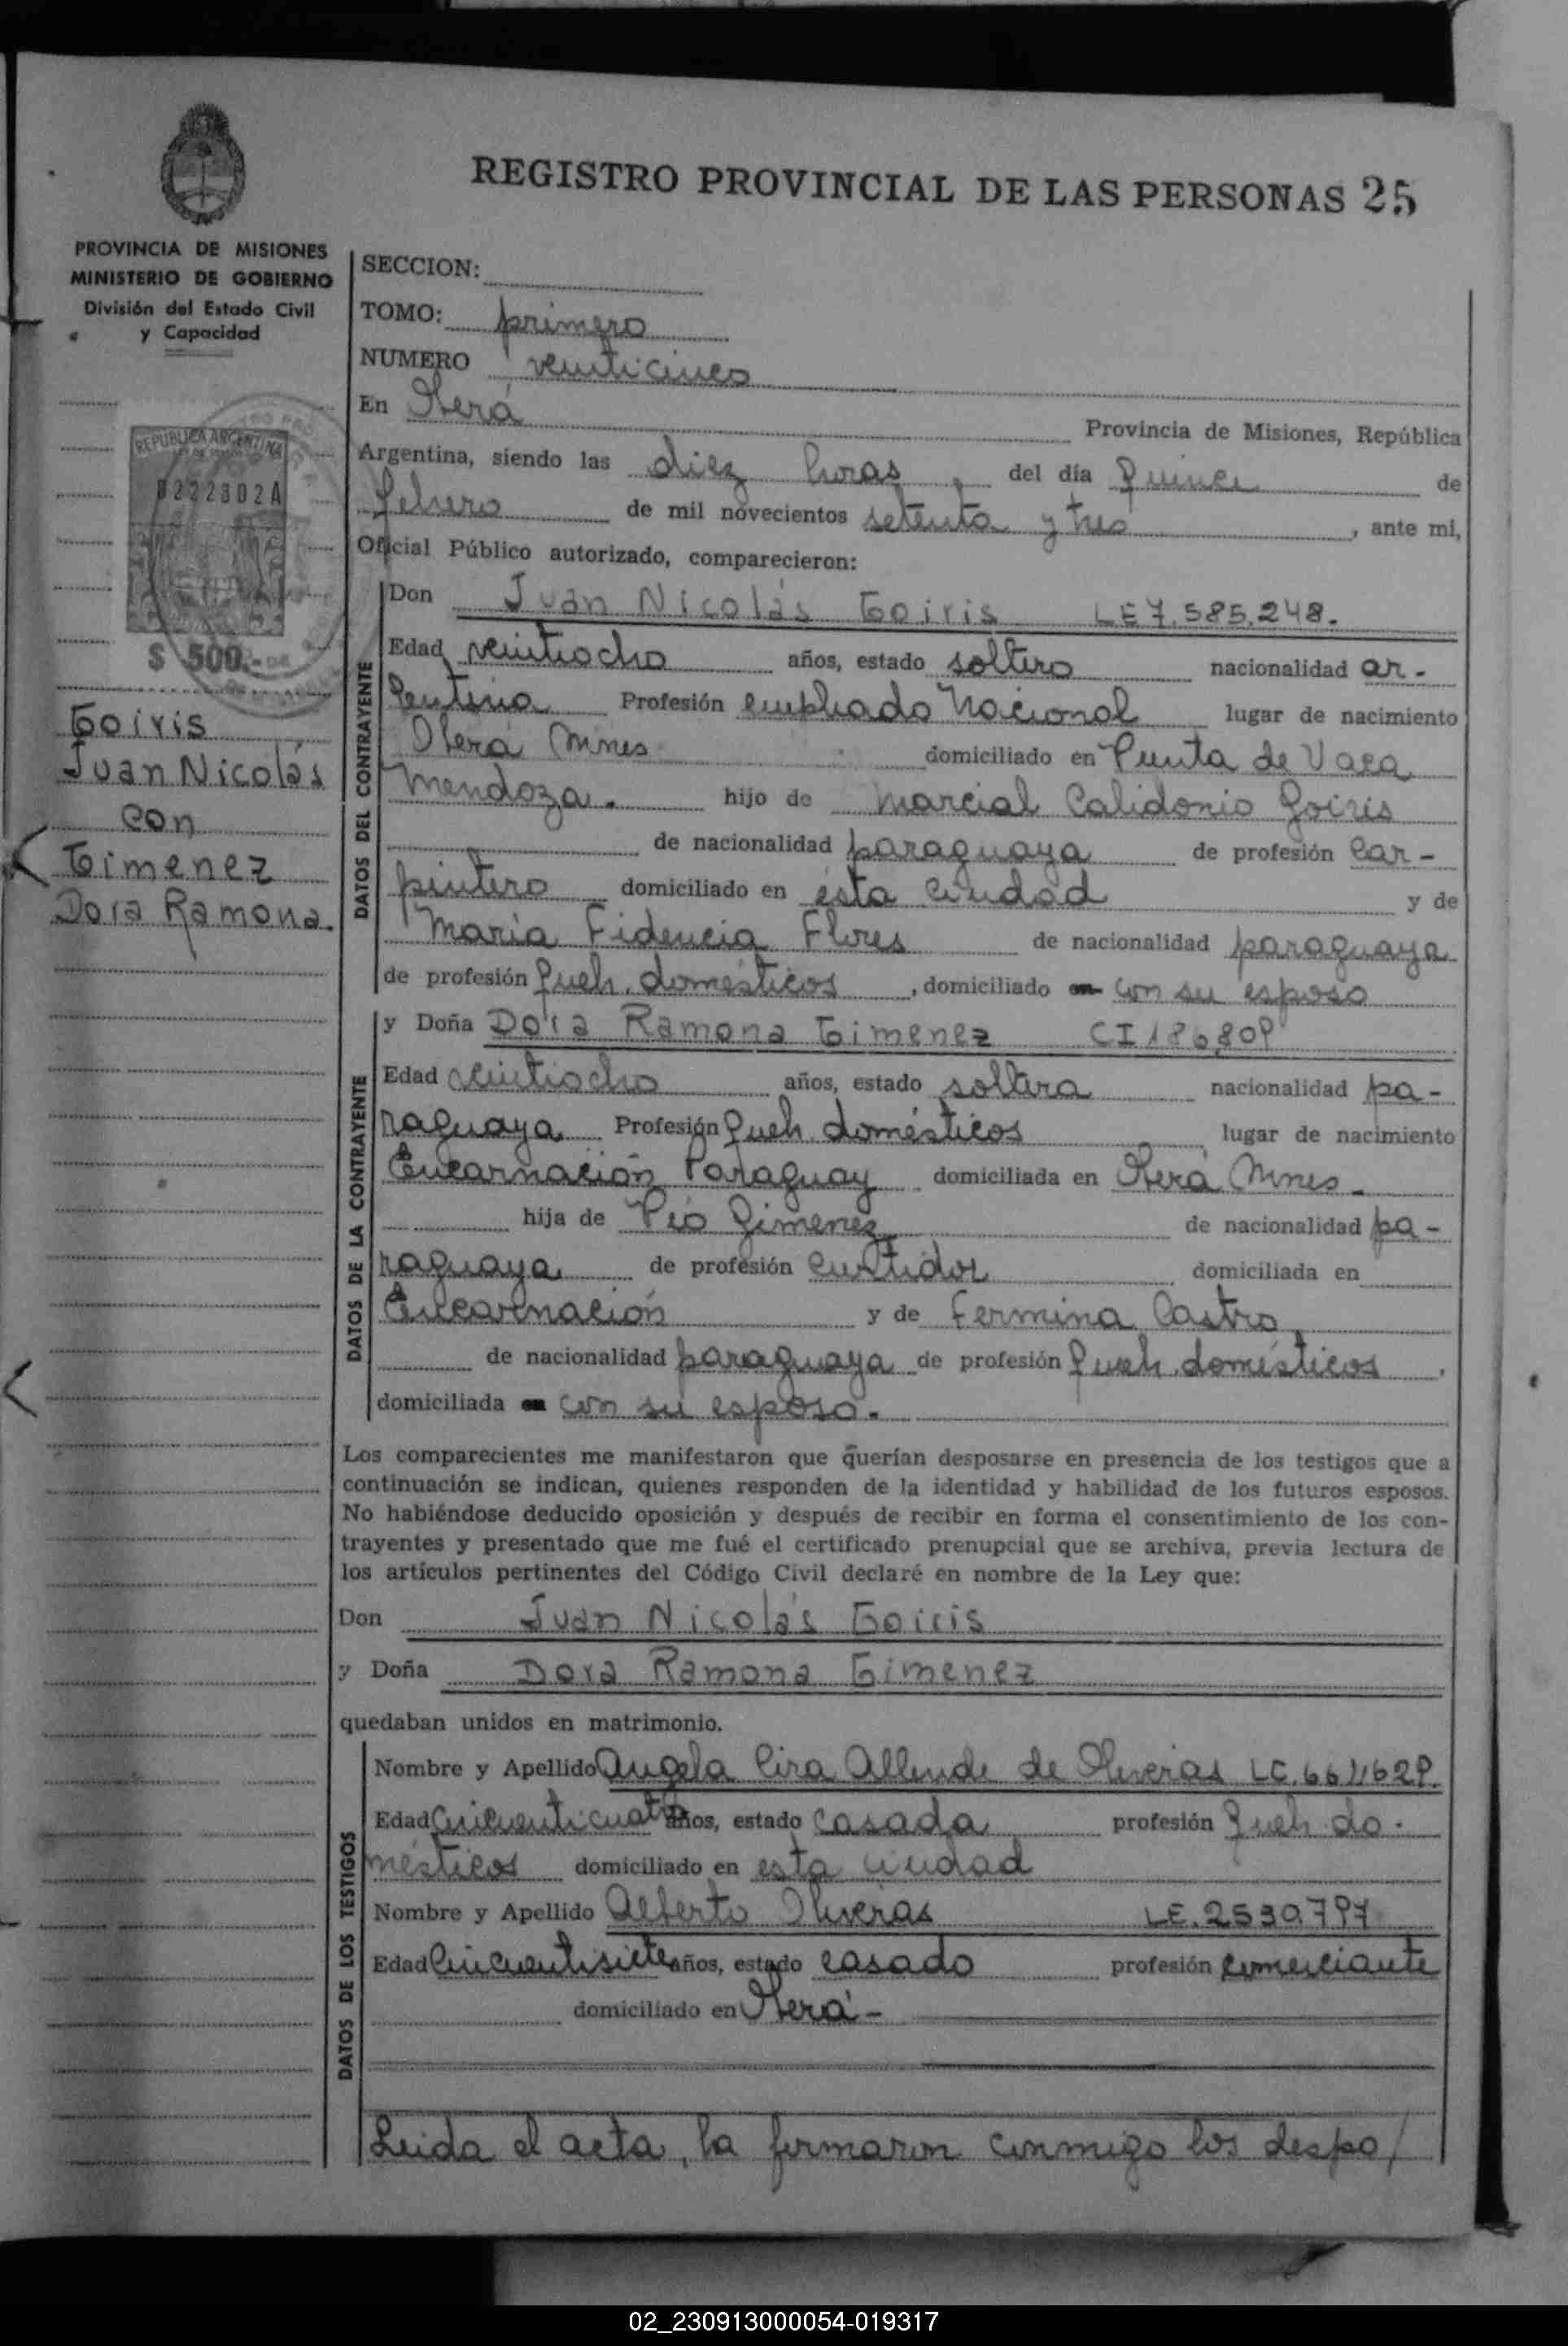 REGISTRO PROVINCIAL DE LAS PERSONAS 25
PROVINCIA DE MISIONES
MINISTERIO DE GOBIERNO
División del Estado Civil
y Capacidad
REPUBLICA ARGENTINA
0222302A
$ 500.-
Goiris
Juan Nicolás
con
Gimenez
Dora Ramona.
SECCION:
TOMO: primero
NUMERO veinticinco
En Oberá
Provincia de Misiones, República
Argentina, siendo las diez horas, del día quince de
febrero de mil novecientos setenta y tres, ante mi,
Oficial Público autorizado, comparecieron:
DATOS DEL CONTRAYENTE
Don Juan Nicolás Goiris LE 7.585.248.
Edad veintiocho años, estado soltero nacionalidad ar-
gentina Profesión empleado Nacional lugar de nacimiento
Oberá Mnes domiciliado en Punta de Vaca
Mendoza. hijo de Marcial Calidonio Goiris
de nacionalidad paraguaya de profesión car-
pintero domiciliado en ésta ciudad y de
María Fidencia Flores de nacionalidad paraguaya
de profesión queh. domésticos, domiciliado en con su esposo
DATOS DE LA CONTRAYENTE
y Doña Dora Ramona Gimenez CI 186.809
Edad veintiocho años, estado soltera nacionalidad pa-
raguaya Profesión queh. domésticos lugar de nacimiento
Encarnación Paraguay domiciliada en Oberá Mnes.
hija de Pio Gimenez de nacionalidad pa-
raguaya de profesión curtidor domiciliada en
Encarnación y de Fermina Castro
de nacionalidad paraguaya de profesión queh. domésticos,
domiciliada en con su esposo.
Los comparecientes me manifestaron que querían desposarse en presencia de los testigos que a
continuación se indican, quienes responden de la identidad y habilidad de los futuros esposos.
No habiéndose deducido oposición y después de recibir en forma el consentimiento de los con-
trayentes y presentado que me fué el certificado prenupcial que se archiva, previa lectura de
los artículos pertinentes del Código Civil declaré en nombre de la Ley que:
Don Juan Nicolás Goiris
y Doña Dora Ramona Gimenez
quedaban unidos en matrimonio.
DATOS DE LOS TESTIGOS
Nombre y Apellido Angela Cira Allende de Oliveras LC.
Edad cincuenticuatro años, estado casada profesión queh do-
mésticos domiciliado en esta ciudad
Nombre y Apellido Alberto Oliveras LE. 2530.797
Edad cincuentisiete años, estado casado profesión comerciante
domiciliado en Oberá-
Leida el acta, la firmaron conmigo los despo/
02_230913000054-019317